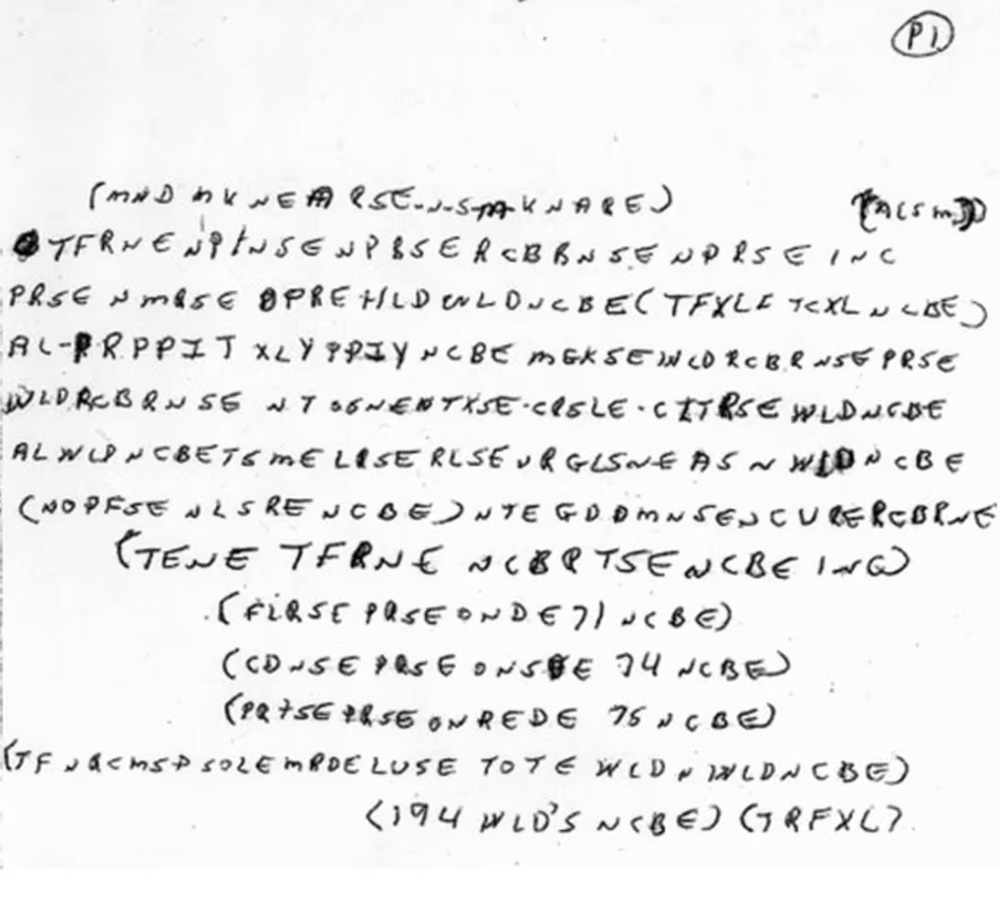 P1
(MND MKNEARSE-N-S-M-KNARE) (ACSM)
TFRNENPINSENPBSERCBBNSENPRSEINC
PRSENMRSEOPREHLDWLDNCBE(TFXLFTCXLNCBE)
AL-PRPPITXLYPPIYNCBEMGKSEWLDRCBRNSEPRSE
WLDRCBRNSENTSGNENTXSE-CRSLE-CITRSEWLDNCBE
ALWLPNCBETSMELRSERLSEURGLSNEASNWLDNCBE
(NOPFSENLSRENCBE)NTEGDDMNSENCURERCBRNE
(TENE TFRNE NCBRTSENCBE INC)
(FLRSE PRSE ONDE 71 NCBE)
(CDNSE PRSE ONSDE 74 NCBE)
(PRTSE PRSE ONREDE 75 NCBE)
(TFNRCMSP SOLE MRDE LUSE TOTE WLD N WLD NCBE)
(194 WLD'S NCBE) (TRFXL)